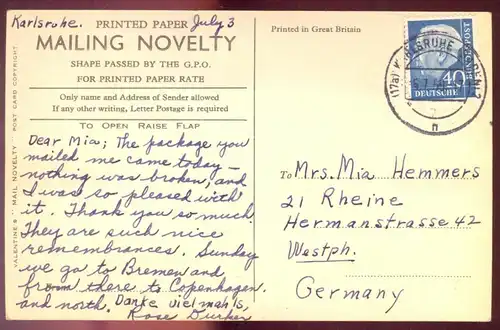 Karlsruhe.
PRINTED PAPER July 3
MAILING NOVELTY
SHAPE PASSED BY THE G.P.O.
FOR PRINTED PAPER RATE
Only name and Address of Sender allowed
If any other writing, Letter Postage is required
TO OPEN RAISE FLAP
Dear Mia; The package you
mailed me came today –
nothing was broken, and
I was so pleased with
it. Thank you so much.
They are such nice
remembrances. Sunday
we go to Bremen and
from there to Copenhagen
and north. Danke vielmahls,
Rose
VALENTINE'S "MAIL NOVELTY" POST CARD COPYRIGHT
Printed in Great Britain
DEUTSCHE
BUNDESPOST
40
(17a) KARLSRUHE
To Mrs. Mia Hemmers
21 Rheine
Hermanstrasse 42
Westph.
Germany